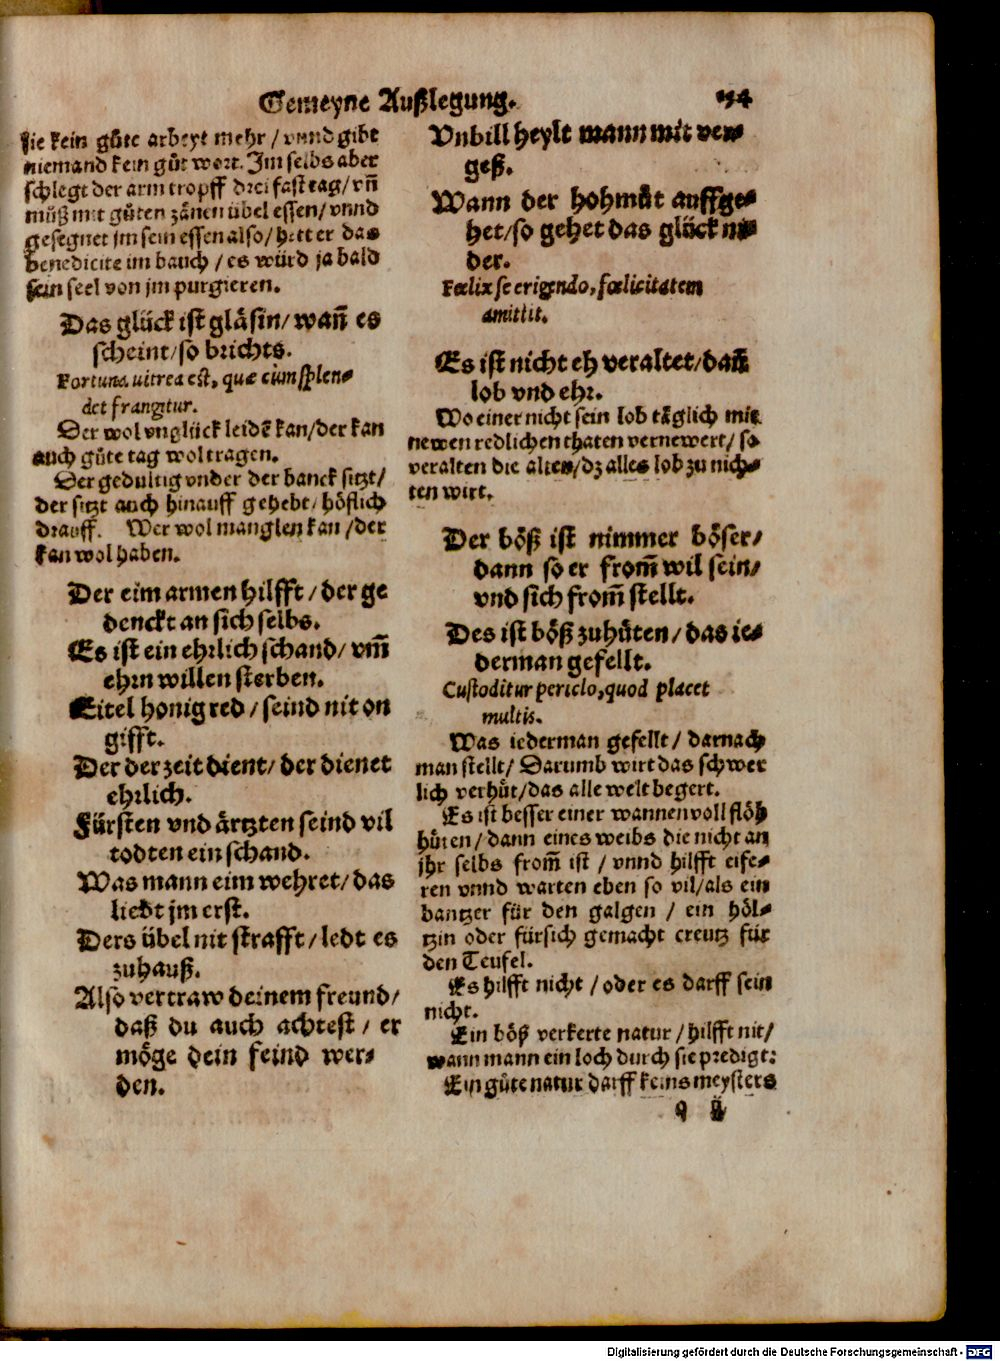 Gemeyne Außlegung. 154
sie kein gůte arbeyt mehr / vnnd gibt
niemand kein gůt wort. Im selbs aber
schlegt der arm tropff drei fast tag / vñ
můß mit gůten zänen übel essen / vnnd
gesegnet jm sein essen also / hett er das
benedicite im bauch / es würd ja bald
sein seel von jm purgieren.
Das glück ist gläsin / wañ es
scheint / so brichts.
Fortuna uitrea est, quæ cùm splen-
det frangitur.
Der wol vnglück leidē kan / der kan
auch gůte tag wol tragen.
Der gedultig vnder der banck sitzt /
der sitzt auch hinauff gehebt / höflich
drauff. Wer wol manglen kan / der
kan wol haben.
Der eim armen hilfft / der ge
denckt an sich selbs.
Es ist ein ehrlich schand / vm̃
ehrn willen sterben.
Eitel honig red / seind nit on
gifft.
Der der zeit dient / der dienet
ehrlich.
Fürsten vnd ärtzten seind vil
todten ein schand.
Was mann eim wehret / das
liebt jm erst.
Ders übel nit strafft / ledt es
zuhauß.
Also vertraw deinem freund /
daß du auch achtest / er
möge dein feind wer-
den.
Vnbill heylt mann mit ver-
geß.
Wann der hohmůt auffge-
het / so gehet das glück ni-
der.
Fœlix se erigendo, fœlicitatem
amittit.
Es ist nicht eh veraltet / dañ
lob vnd ehr.
Wo einer nicht sein lob täglich mit
newen redlichen thaten vernewert / so
veralten die alten / dz alles lob zu nich-
ten wirt.
Der böß ist nimmer böser /
dann so er from̃ wil sein /
vnd sich from̃ stellt.
Des ist böß zuhüten / das ie-
derman gefellt.
Custoditur periclo, quod placet
multis.
Was iederman gefellt / darnach
man stellt / Darumb wirt das schwer
lich verhüt / das alle welt begert.
Es ist besser einer wannen voll flöh
hüten / dann eines weibs die nicht an
jhr selbs from̃ ist / vnnd hilfft eife-
ren vnnd warten eben so vil / als ein
bantzer für den galgen / ein höl-
tzin oder fürsich gemacht creutz für
den Teufel.
Es hilfft nicht / oder es darff sein
nicht.
Ein böß verkerte natur / hilfft nit /
wann mann ein loch durch sie predigt:
Ein gůte natur darff keins meysters
q ij
Digitalisierung gefördert durch die Deutsche Forschungsgemeinschaft - DFG